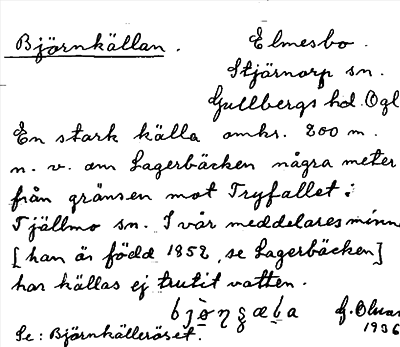 Björnkällan. Elmesbo.
Stjärnorp sn.
Gullbergs hd. Ögl
En stark källa omkr. 200 m.
n. v. om Lagerbäcken några meter
från gränsen mot Tryfallet i
Tjällmo sn. I vår meddelares minne
[han är född 1852, se Lagerbäcken]
har källas ej trutit vatten.
bjö̀ṇçæḷa
1936
Se: Björnkälleröset.